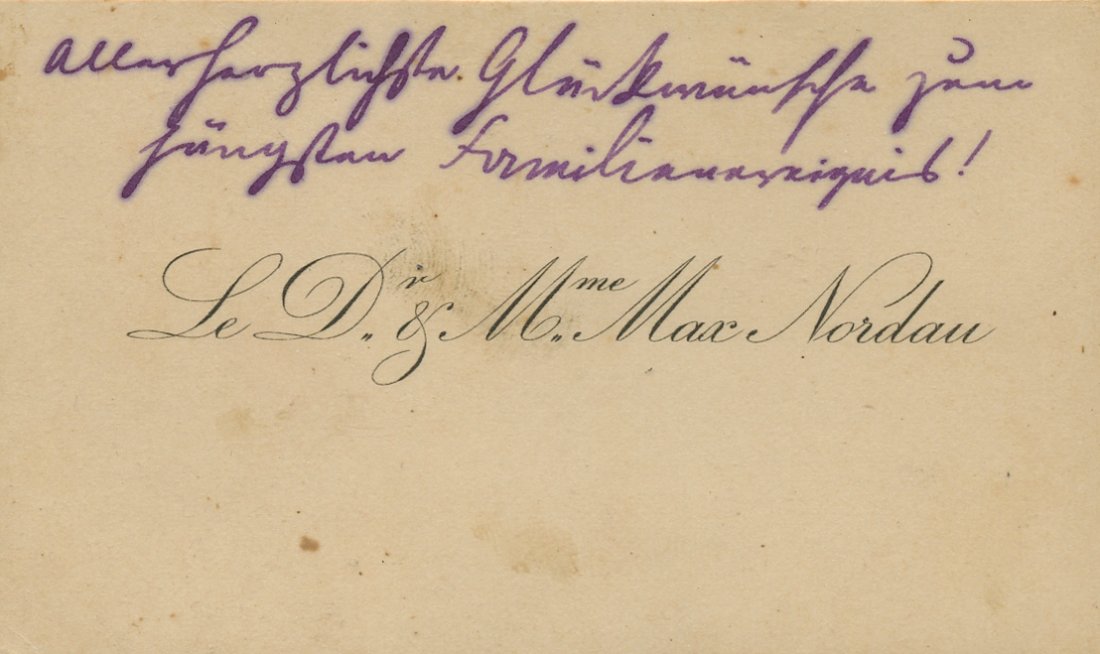 Allerherzlichste Glückwünsche zum
jüngsten Familienereignis!
Le Dr. & Mme. Max Nordau